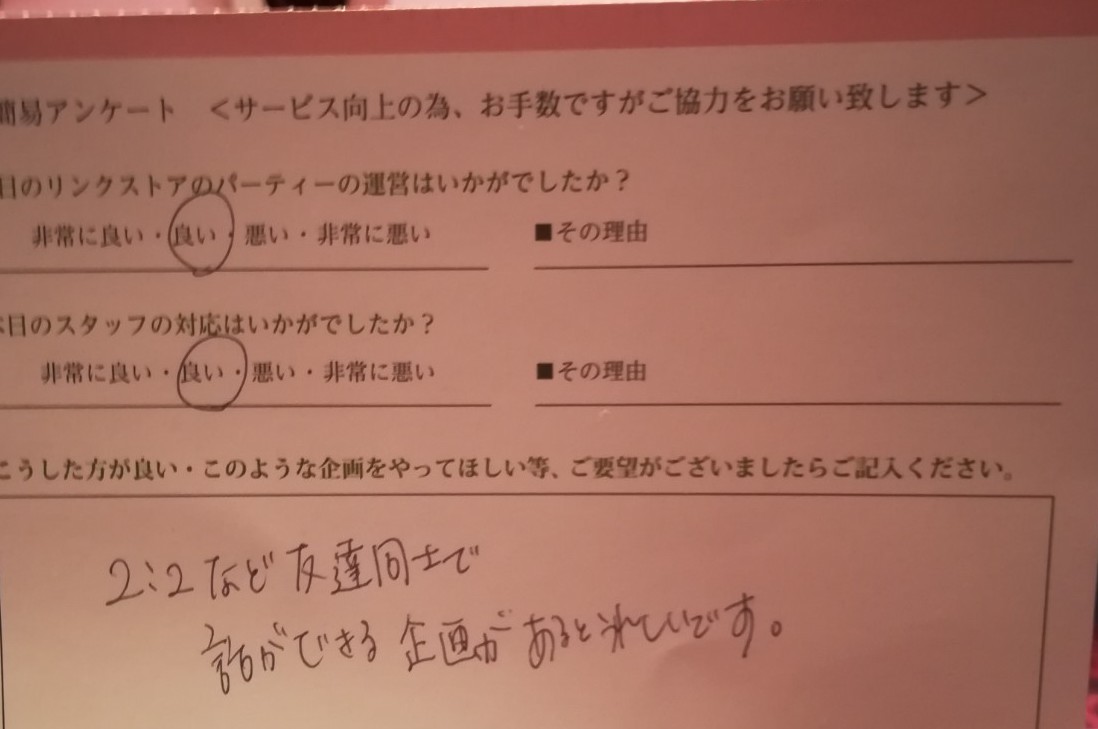 簡易アンケート <サービス向上の為、お手数ですがご協力をお願い致します>
日のリンクストアのパーティーの運営はいかがでしたか?
非常に良い・良い・悪い・非常に悪い ■その理由
本日のスタッフの対応はいかがでしたか?
非常に良い・良い・悪い・非常に悪い ■その理由
こうした方が良い・このような企画をやってほしい等、ご要望がございましたらご記入ください。
2:2など友達同士で
話ができる企画があるとうれしいです。